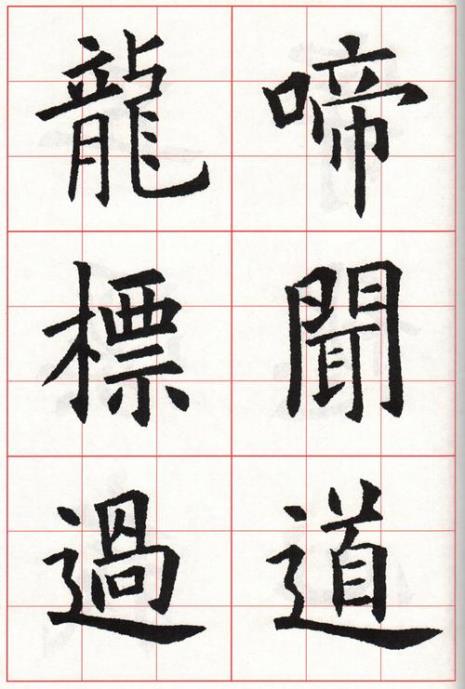 啼聞道
龍標過